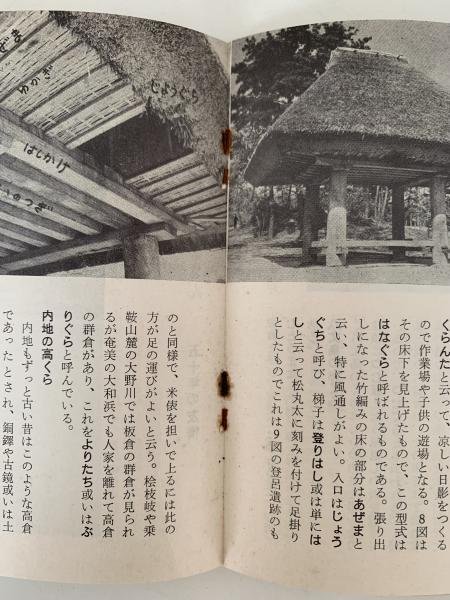 ざま
ゆかぎ
じょうぐら
はしかけ
のつぎ
くらんたと云って、涼しい日影をつくる
ので作業場や子供の遊場となる。8図は
その床下を見上げたもので、この型式は
はなぐらと呼ばれるものである。張り出
しになった竹編みの床の部分はあぜまと
云い、特に風通しがよい。入口はじょう
ぐちと呼び、梯子は登りはし或は単には
しと云って松丸太に刻みを付けて足掛り
としたものでこれは9図の登呂遺跡のも
のと同様で、米俵を担いで上るには此の
方が足の運びがよいと云う。桧枝岐や乗
鞍山麓の大野川では板倉の群倉が見られ
るが奄美の大和浜でも人家を離れて高倉
の群倉があり、これをよりたち或いはぶ
りぐらと呼んでいる。
内地の高くら
内地もずっと古い昔はこのような高倉
であったとされ、銅鐸や古鏡或いは土